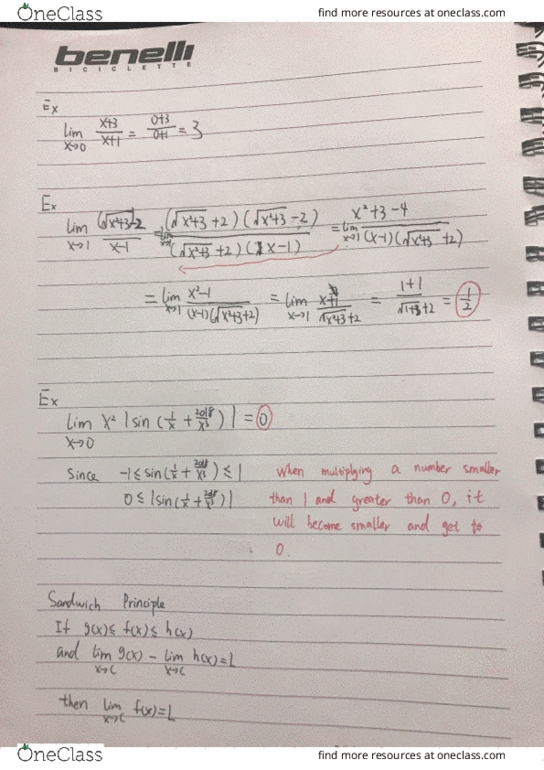 OneClass find more resources at oneclass.com
benelli
BICICLETTE
Ex
lim x→0 (x+3)/(x+1) = (0+3)/(0+1) = 3
Ex
lim x→1 (√(x²+3)-2)/(x-1) = lim x→1 (√(x²+3)+2)(√(x²+3)-2)/((√(x²+3)+2)(x-1)) = lim x→1 (x²+3-4)/((x-1)(√(x²+3)+2))
= lim x→1 (x²-1)/((x-1)(√(x²+3)+2)) = lim x→1 (x+1)/(√(x²+3)+2) = (1+1)/(√(1+3)+2) = 1/2
Ex
lim x→0 x² |sin (1/x + 2018/x³)| = 0
Since -1 ≤ sin(1/x + 2018/x³) ≤ 1 When multiplying a number smaller
0 ≤ |sin(1/x + 2018/x³)| than 1 and greater than 0, it
will become smaller and get to
0.
Sandwich Principle
If g(x) ≤ f(x) ≤ h(x)
and lim x→c g(x) - lim x→c h(x) = L
then lim x→c f(x) = L
OneClass find more resources at oneclass.com